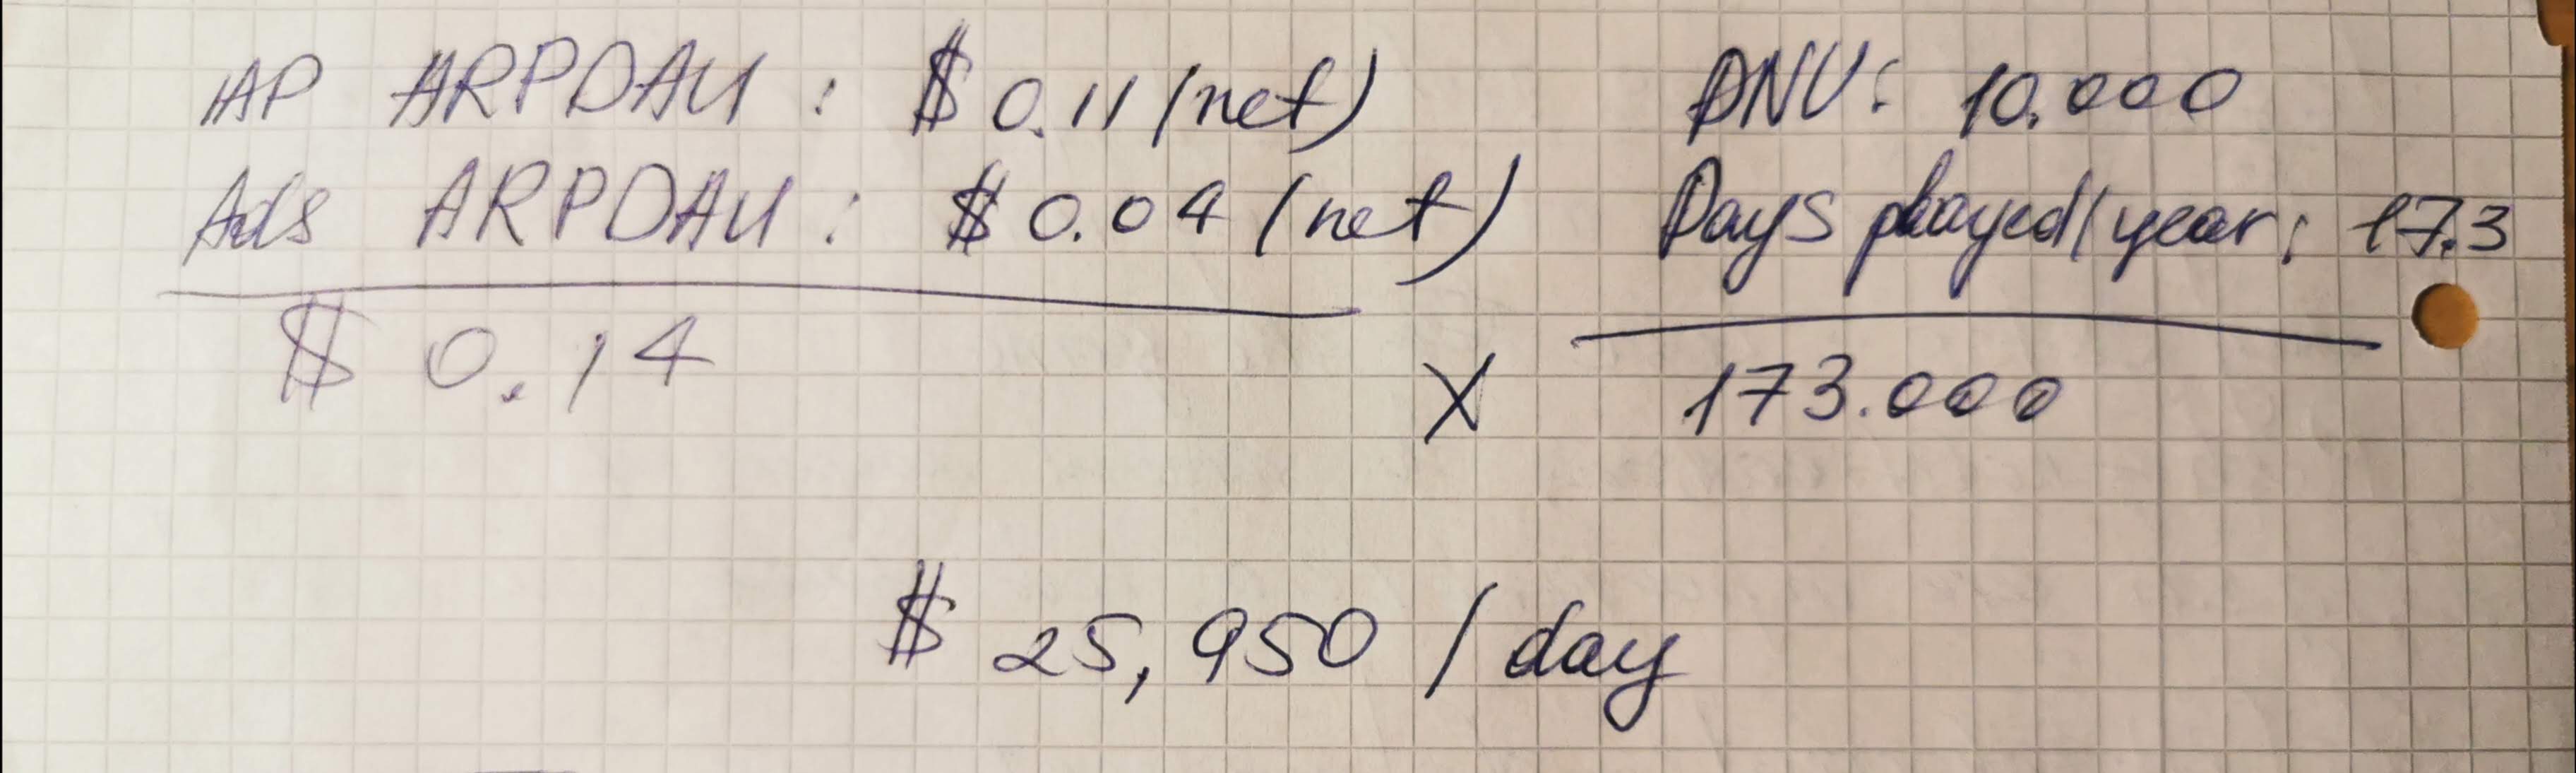 IAP ARPDAU : $ 0.11 (net)
Ads ARPDAU : $ 0.04 (net)
$ 0.14
DNU: 10.000
Days played/year: 17.3
X 173.000
$ 25,950 / day